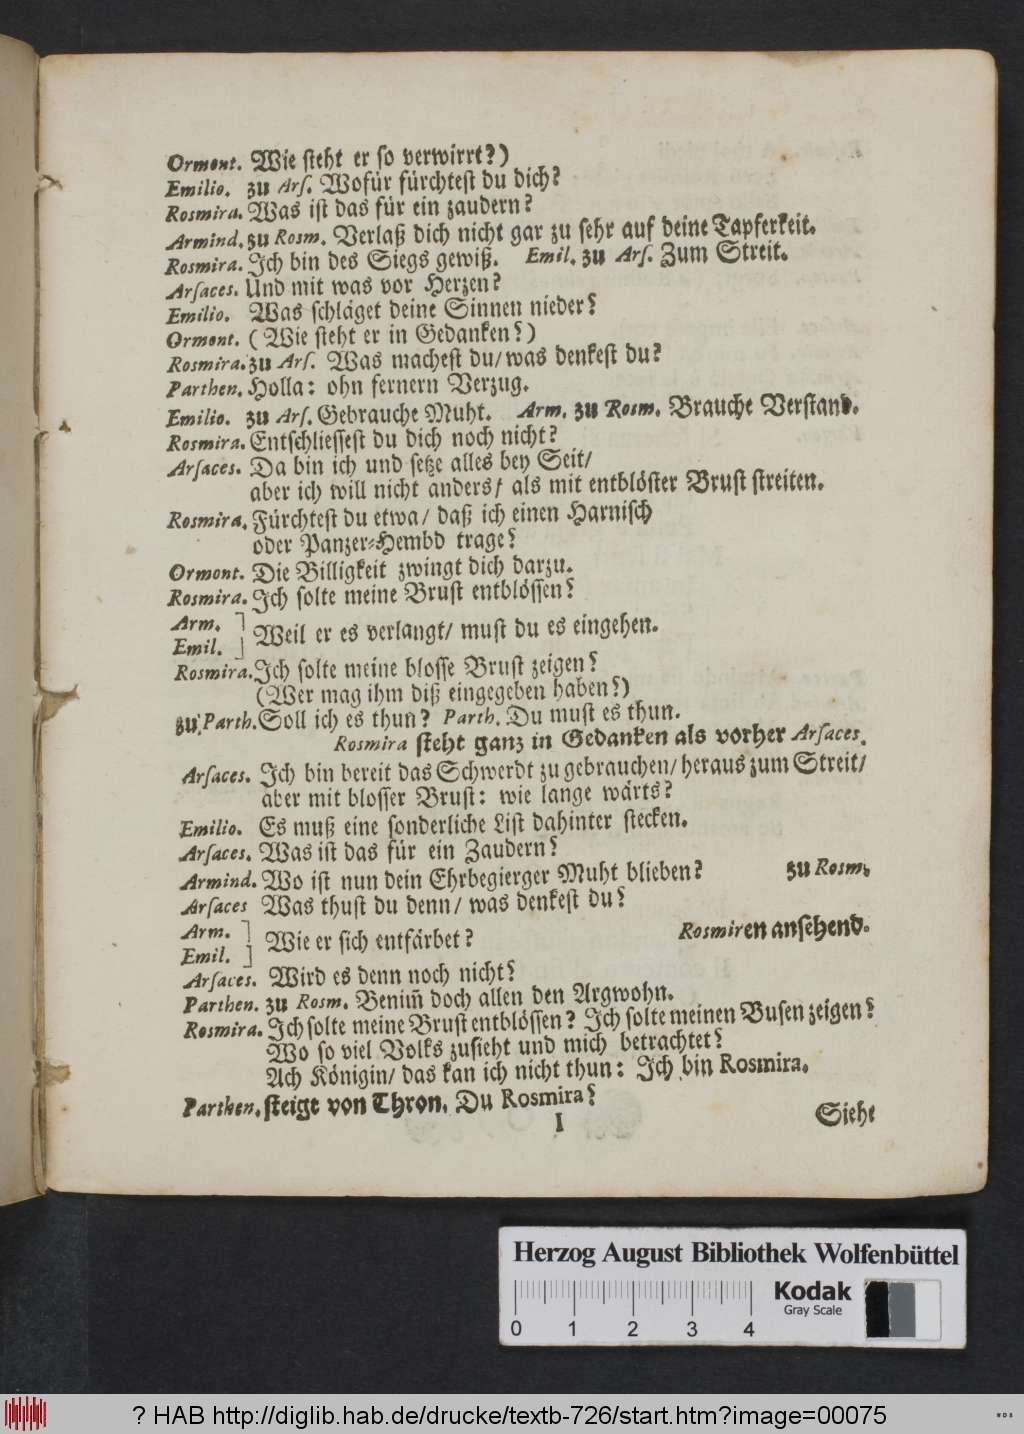 Ormont. Wie steht er so verwirrt?)
Emilio. zu Arſ. Wofür fürchtest du dich?
Rosmira. Was ist das für ein zaudern?
Armind. zu Rosm. Verlaß dich nicht gar zu sehr auf deine Tapferkeit.
Rosmira. Ich bin des Siegs gewiß. Emil. zu Arſ. Zum Streit.
Arſaces. Und mit was vor Herzen?
Emilio. Was schläget deine Sinnen nieder?
Ormont. (Wie steht er in Gedanken!)
Rosmira. zu Arſ. Was machest du/ was denkest du?
Parthen. Holla: ohn fernern Verzug.
Emilio. zu Arſ. Gebrauche Muht. Arm. zu Rosm. Brauche Verstand.
Rosmira. Entschliessest du dich noch nicht?
Arſaces. Da bin ich und setze alles bey Seit/
aber ich will nicht anders/ als mit entblöster Brust streiten.
Rosmira. Fürchtest du etwa/ daß ich einen Harnisch
oder Panzer-Hembd trage?
Ormont. Die Billigkeit zwingt dich darzu.
Rosmira. Ich solte meine Brust entblössen?
Arm. ]
Emil. ] Weil er es verlangt/ must du es eingehen.
Rosmira. Ich solte meine blosse Brust zeigen?
(Wer mag ihm diß eingegeben haben?)
zu Parth. Soll ich es thun? Parth. Du must es thun.
Rosmira steht ganz in Gedanken als vorher Arſaces.
Arſaces. Ich bin bereit das Schwerdt zu gebrauchen/ heraus zum Streit/
aber mit blosser Brust: wie lange wärts?
Emilio. Es muß eine sonderliche List dahinter stecken.
Arſaces. Was ist das für ein Zaudern?
Armind. Wo ist nun dein Ehrbegierger Muht blieben? zu Rosm.
Arſaces Was thust du denn/ was denkest du?
Arm. ]
Emil. ] Wie er sich entfärbet? Rosmiren ansehend.
Arſaces. Wird es denn noch nicht?
Parthen. zu Rosm. Benim̃ doch allen den Argwohn.
Rosmira. Ich solte meine Brust entblössen? Ich solte meinen Busen zeigen?
Wo so viel Volks zusieht und mich betrachtet?
Ach Königin/ das kan ich nicht thun: Ich bin Rosmira.
Parthen. steigt von Thron. Du Rosmira?
I
Siehe
Herzog August Bibliothek Wolfenbüttel
Kodak
Gray Scale
0 1 2 3 4
? HAB http://diglib.hab.de/drucke/textb-726/start.htm?image=00075